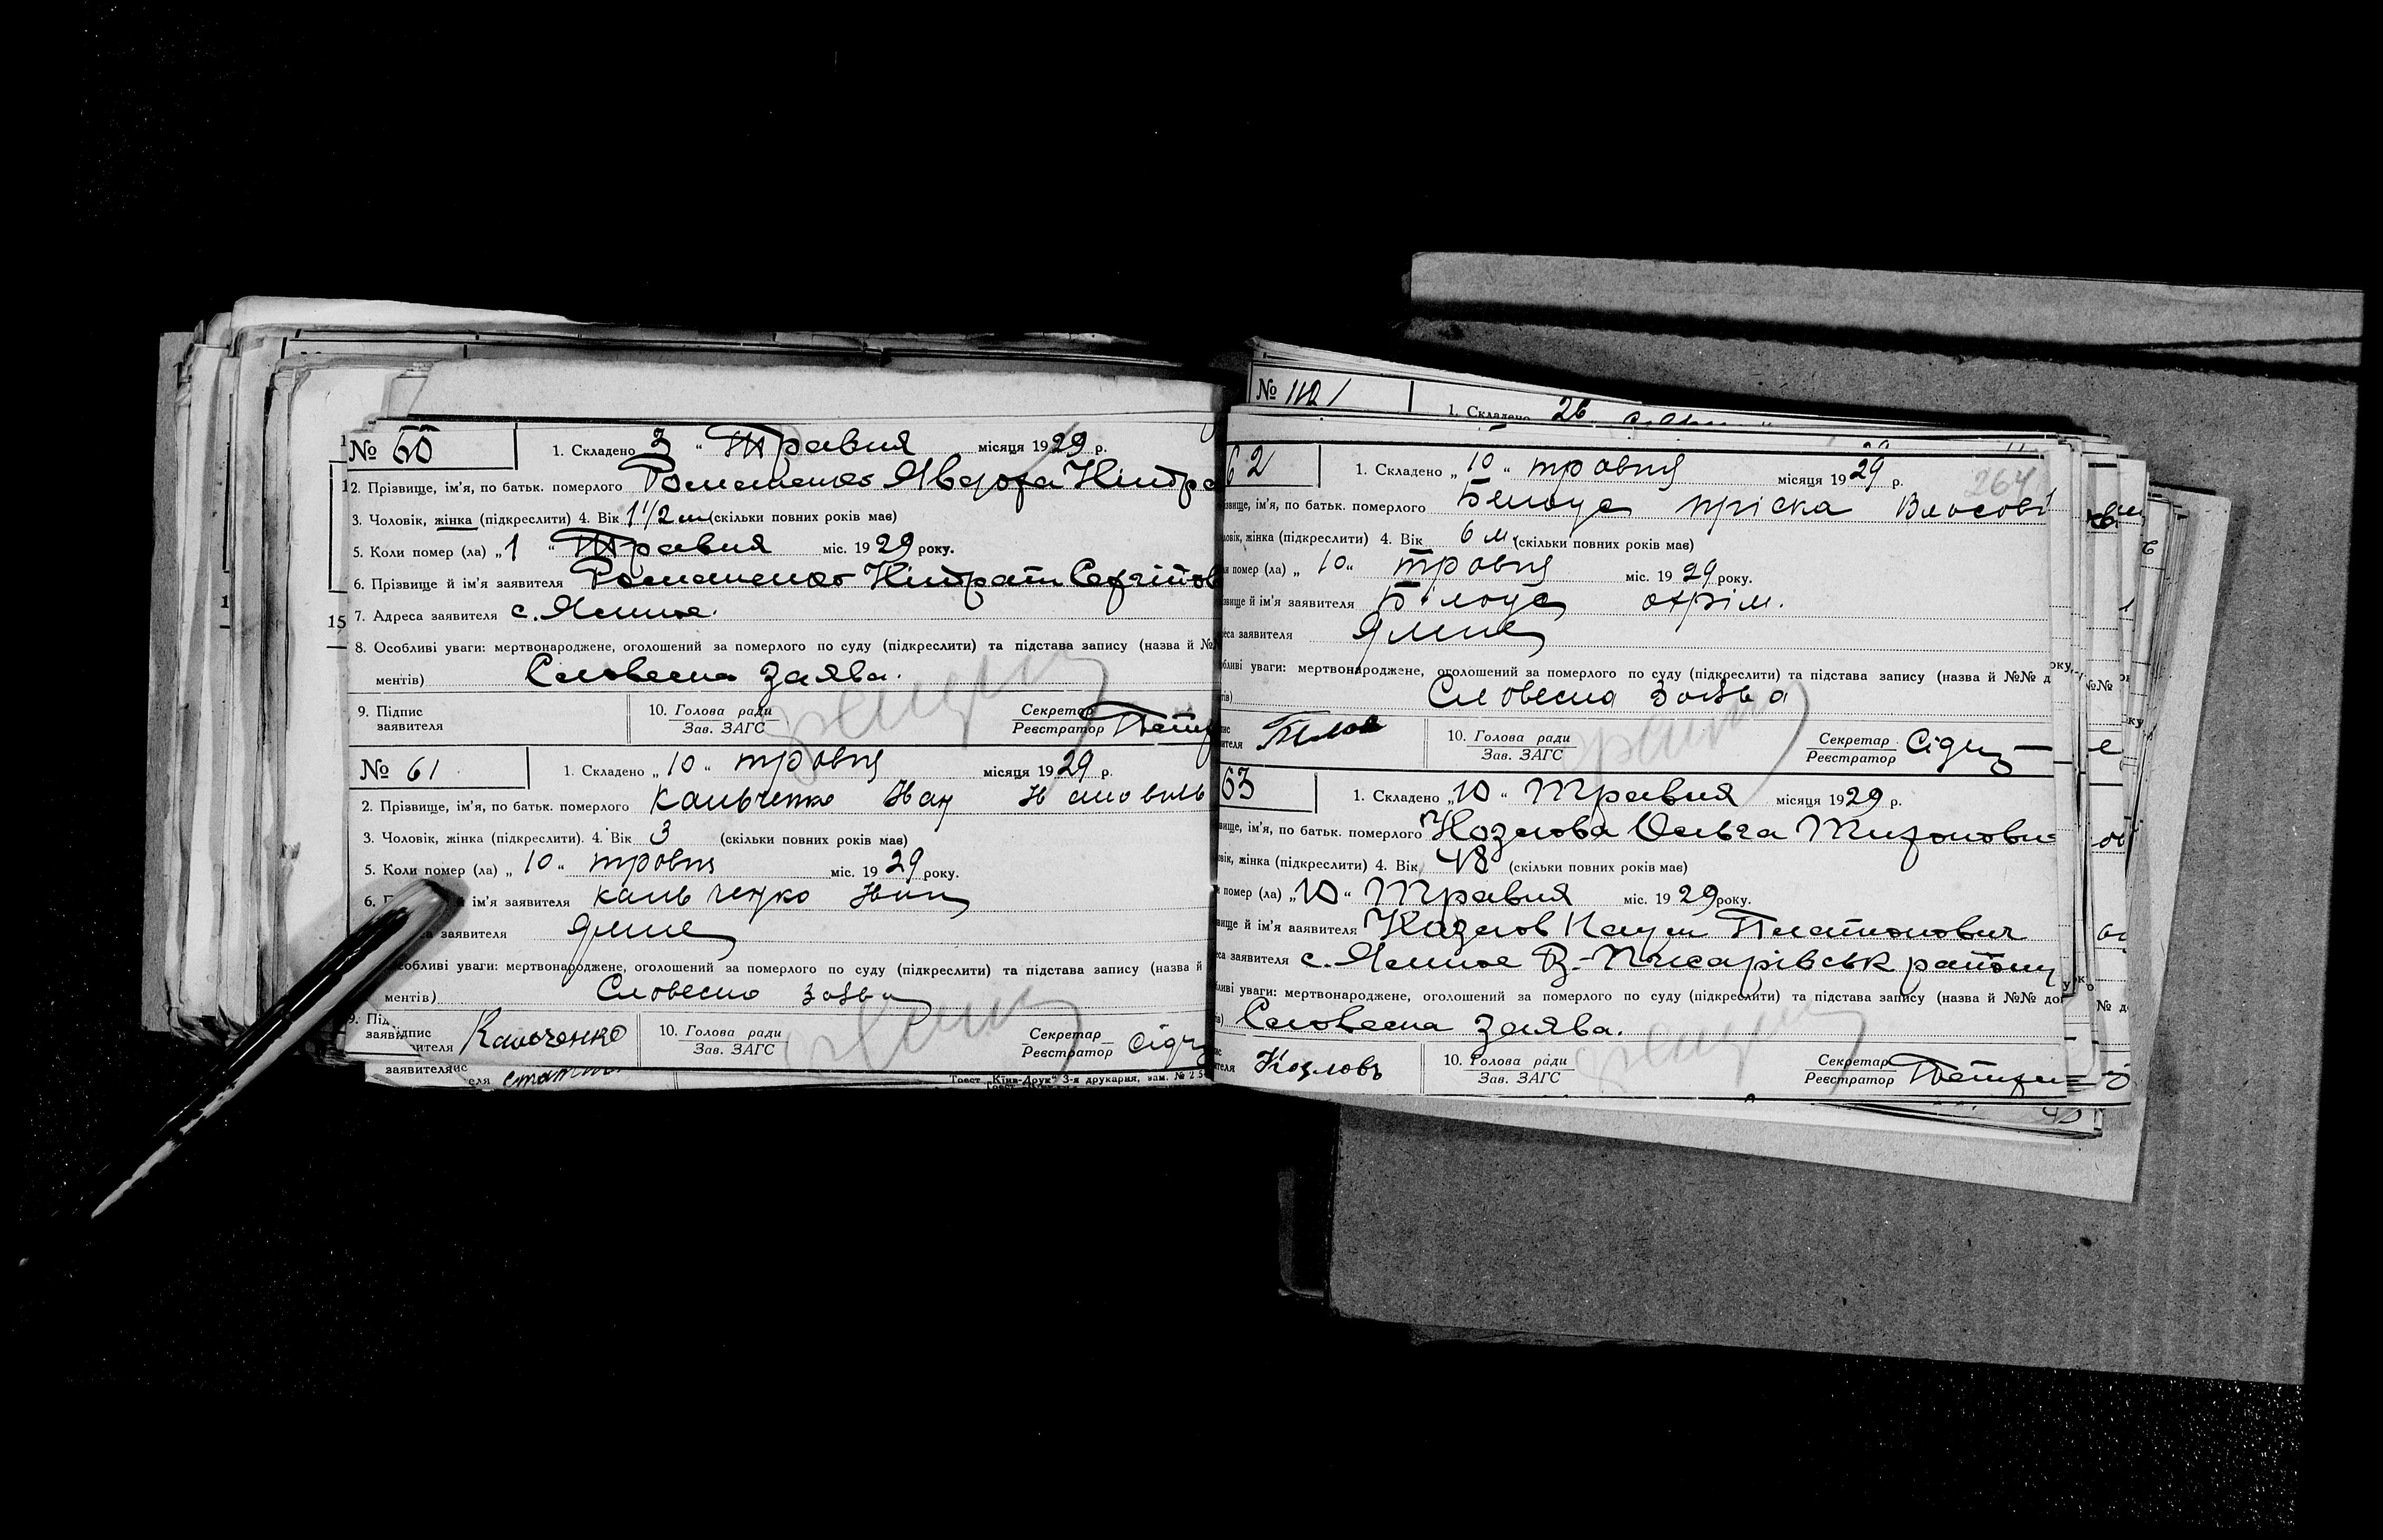 № 60
1. Складено 3 " Травня місяця 1929 р.
2. Прізвище, ім'я, по батьк. померлого Ромашенко Явдоха Кіндра
3. Чоловік, жінка (підкреслити) 4. Вік 1 1/2 м (скільки повних років має)
5. Коли помер (ла) „1 " Травня міс. 1929 року.
6. Прізвище й ім'я заявителя Ромашенко Кіндрат Сергійов
7. Адреса заявителя с. Ямпіє.
8. Особливі уваги: мертвонароджене, оголошений за померлого по суду (підкреслити) та підстава запису (назва й №
ментів) Словесна заява.
9. Підпис заявителя
10. Голова ради
Зав. ЗАГС
Секретар
Реєстратор
№ 61
1. Складено „10" травня місяця 1929 р.
2. Прізвище, ім'я, по батьк. померлого Кальченко Іван
3. Чоловік, жінка (підкреслити). 4. Вік 3 (скільки повних років має)
5. Коли помер (ла) „10" травня міс. 1929 року.
6. ім'я заявителя Кальченко
заявителя
особливі уваги: мертвонароджене, оголошений за померлого по суду (підкреслити) та підстава запису (назва й
ментів) Словесна заява
9. Підпис Кальченко
10. Голова ради
Зав. ЗАГС
Секретар
Реєстратор
Трест „Київ-Друк" 3-я друкарня, зам. №
№ 1121
1. Складено 26
264
62
1. Складено „10" травня місяця 1929 р.
ім'я, по батьк. померлого Білоус Пріска Власові
жінка (підкреслити) 4. Вік 6 м. (скільки повних років має)
помер (ла) „10" травня міс. 1929 року.
й ім'я заявителя Білоус Охрім.
заявителя
уваги: мертвонароджене, оголошений за померлого по суду (підкреслити) та підстава запису (назва й №№ д
Словесна заява
10. Голова ради
Зав. ЗАГС
Секретар
Реєстратор
63
1. Складено „10" Травня місяця 1929 р.
ім'я, по батьк. померлого Козлова Ольга Мироновна
жінка (підкреслити) 4. Вік 48 (скільки повних років має)
помер (ла) „10" Травня міс. 1929 року.
й ім'я заявителя Козлов Наум Платонович
заявителя с. Ямпіє В.-Писарівськ району
уваги: мертвонароджене, оголошений за померлого по суду (підкреслити) та підстава запису (назва й №№ до
Словесна заява.
Козловъ
10. Голова ради
Зав. ЗАГС
Секретар
Реєстратор